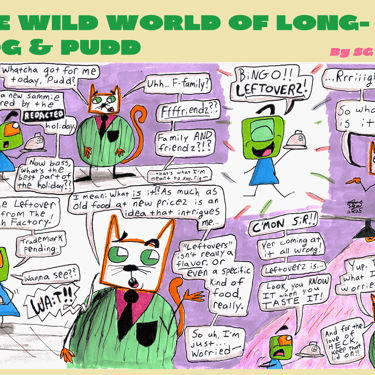 E WILD WORLD OF LONG-
OG & PUDD
By SG
Whatcha got for me
today, Pudd?
a new sammie
red by the
REDACTED
holiday.
Now boss,
What's the
best part of
the holiday??
Uhh.. F-family?
Ffffriendz??
Family AND
friendz?!?
...that's what I'm
meant to say, rig--
BINGO!!
LEFTOVERZ!
...Rrriiigh
So wha
is it
the Leftover
from The
h Factory.
Trademark
pending.
Wanna see??
WAIT!!
I mean: What is it? As much as
old food at new pricez is an
idea that intrigues
me...
"Leftovers"
isn't really a
flavor. or
even a specific
kind of
food,
really.
So uh, I'm
just...
Worried--
C'MON S.R!!
Yer coming at
it all wrong!
Leftoverz is...
Look, you KNOW
IT when you
TASTE IT!
Yup. T
what I
worried
And for the
love of
HECK,
keep that
lid on!!